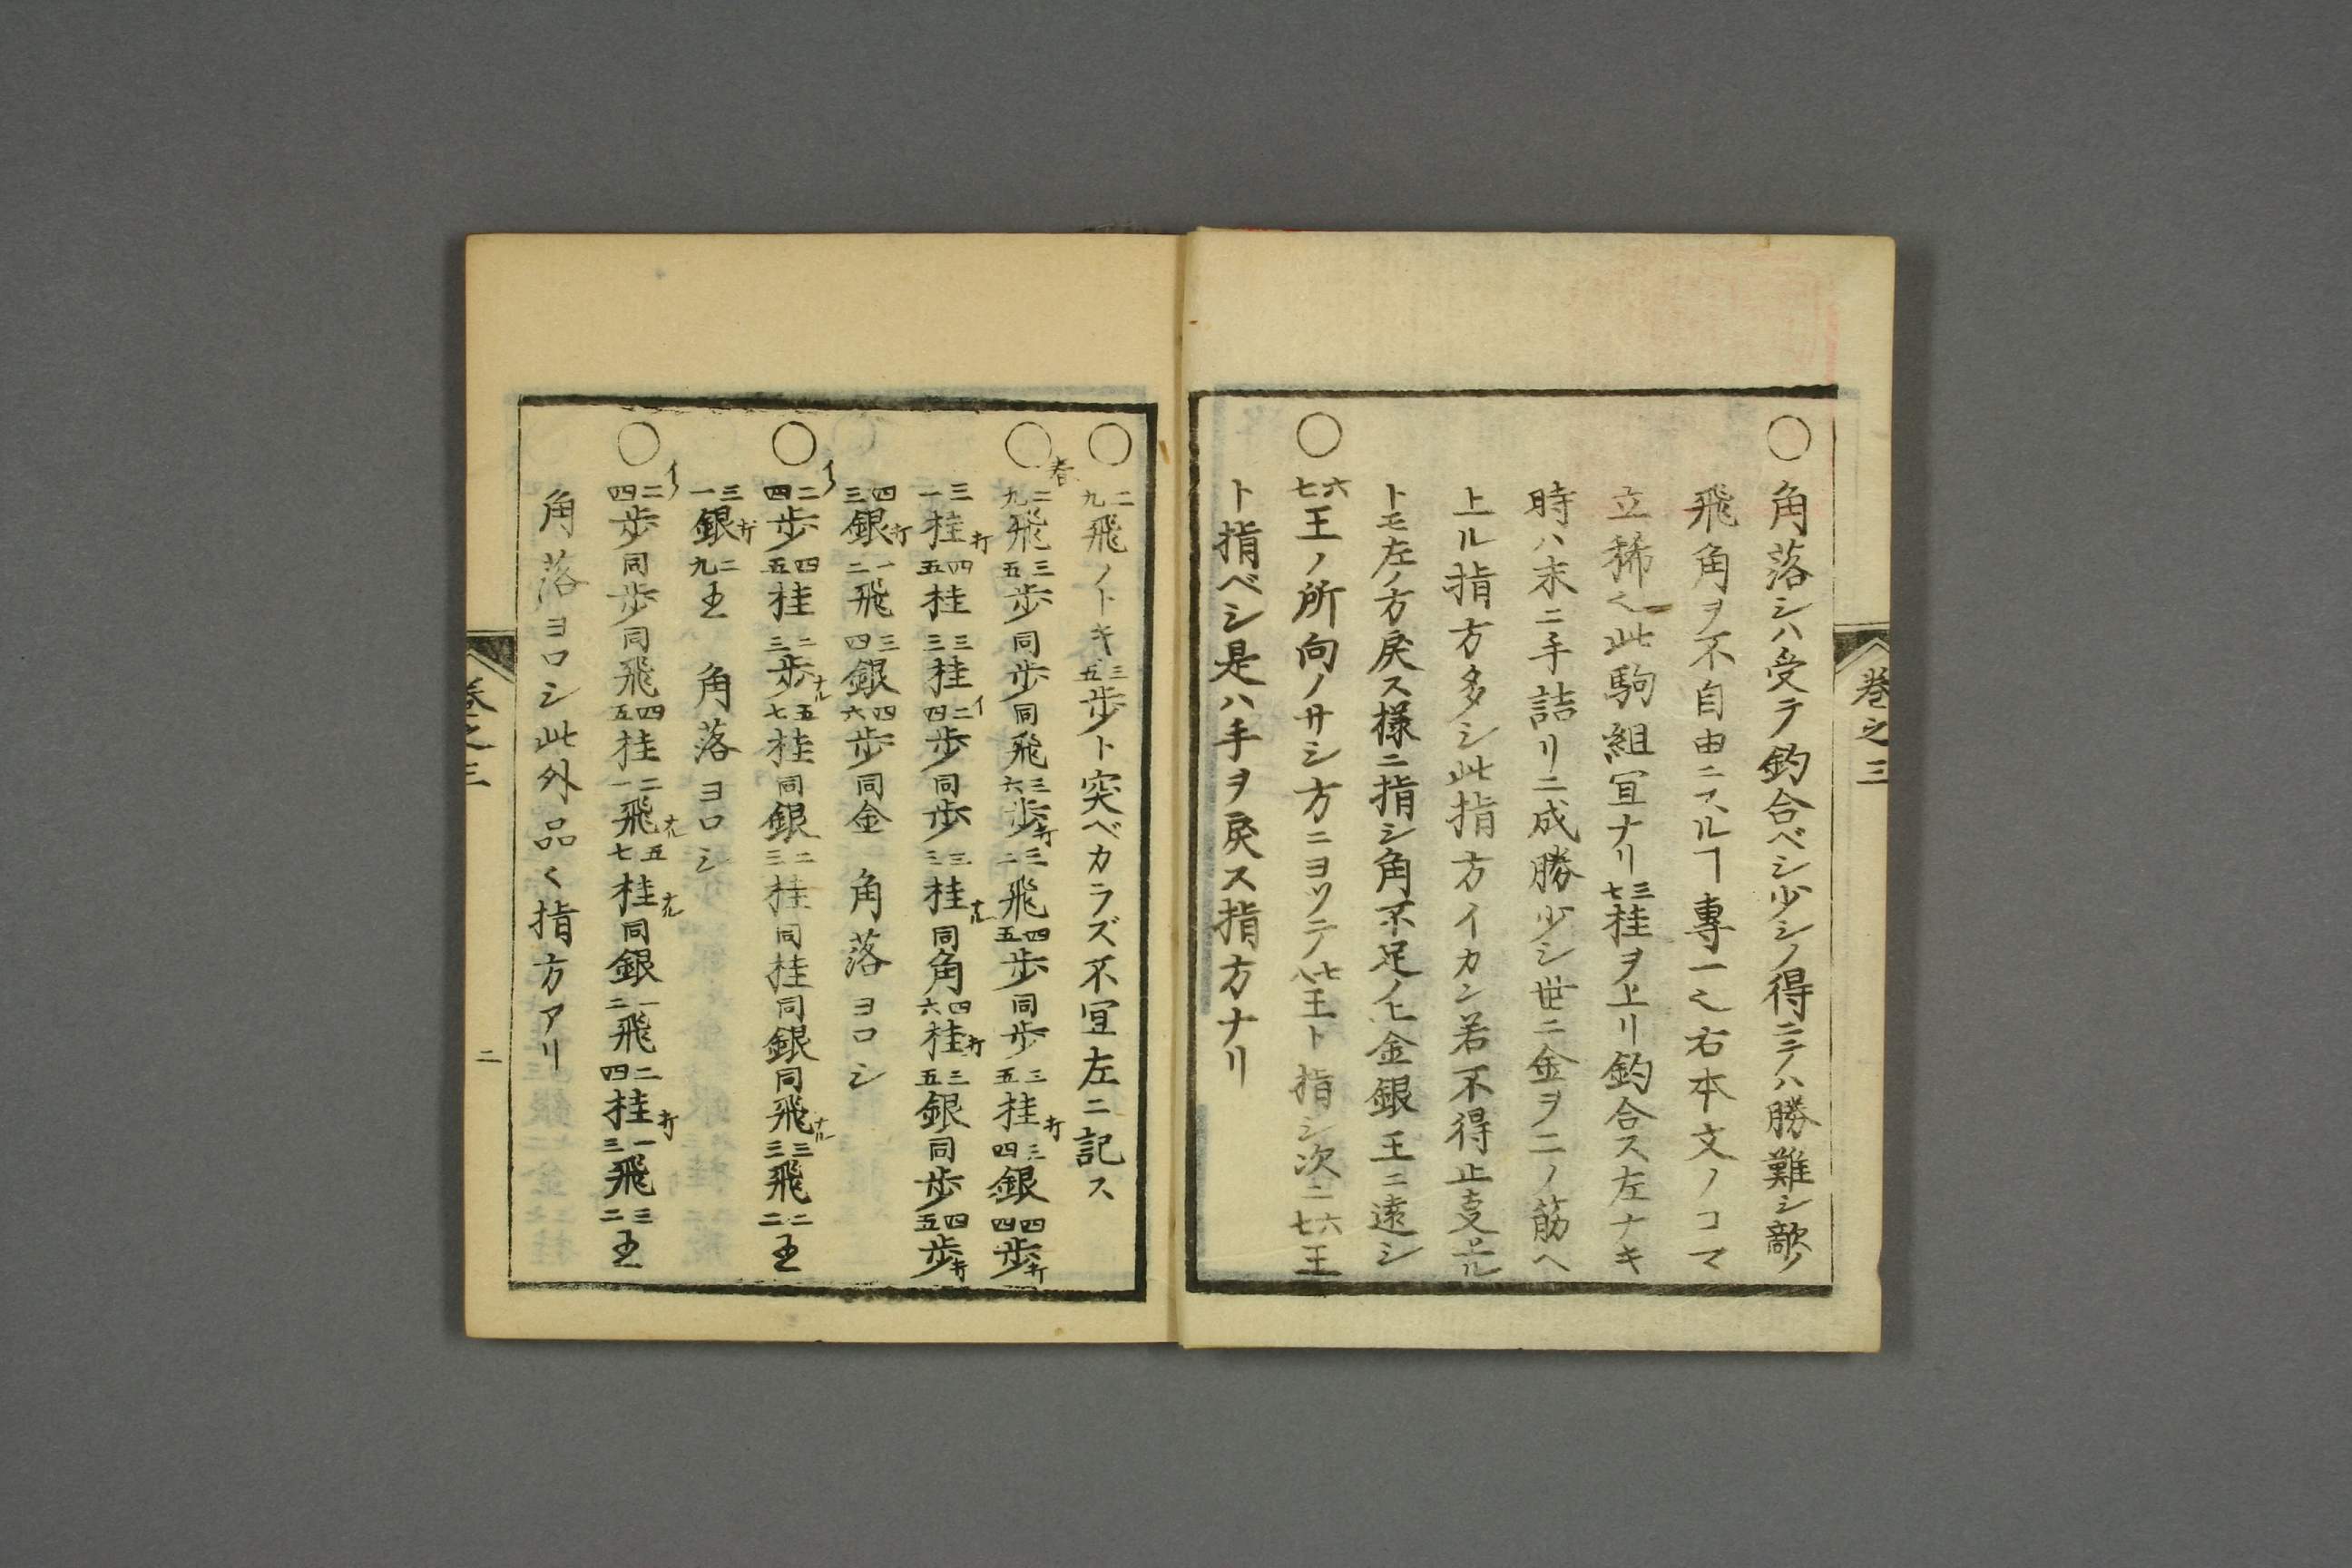 巻之三
○角落シハ受テ釣合ベシ少シノ得ニテハ勝難シ敵ノ
飛角ヲ不自由ニスルヿ専一也右本文ノコマ
立稀也此駒組冝ナリ三七桂ヲ上リ釣合ス左ナキ
時ハ末ニ手詰リニ成勝少シ世ニ金ヲ二ノ筋ヘ
上ル指方多シ此指方イカン若不得止支ル
トモ左ノ方戻ス様ニ指シ角不足ノヒ金銀王ニ遠シ
○六七王ノ所向ノサシ方ニヨツテ七八王ト指シ次ニ六七王
ト指ベシ是ハ手ヲ戻ス指方ナリ
○二九飛ノトキ三五歩ト突ベカラズ不冝左ニ記ス
○春二九飛三五歩同歩同飛三六歩打三二飛四五歩同歩三五桂打三四銀四四歩打
三一桂打四五桂三三桂イ二四歩同歩三三桂ナル同角四六桂打三五銀同歩四五歩打
四三銀打一二飛三四銀四六歩同金 角落ヨロシ
○イ二四歩四五桂二三歩ナル五七桂同銀二三桂同桂同銀同飛ナル三三飛二二王
三一銀打二九王 角落ヨロシ
○イ二四歩同歩同飛四五桂二一飛ナル五七桂ナル同銀一二飛二四桂打一三飛三二王
角落ヨロシ此外品く指方アリ
巻之三
二